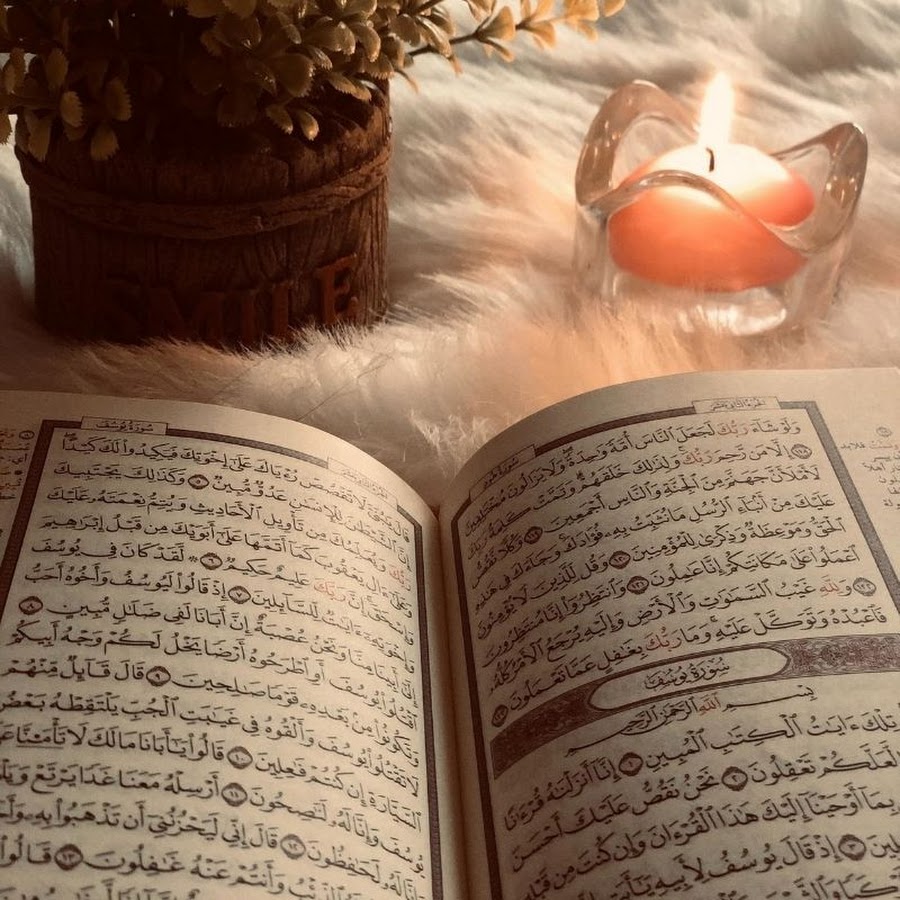 SMILE
سُورَةُ هُودٍ
وَلَوْ شَآءَ رَبُّكَ لَجَعَلَ ٱلنَّاسَ أُمَّةً وَٰحِدَةً وَلَا يَزَالُونَ مُخْتَلِفِينَ
١١٨ إِلَّا مَن رَّحِمَ رَبُّكَ وَلِذَٰلِكَ خَلَقَهُمْ وَتَمَّتْ كَلِمَةُ رَبِّكَ
لَأَمْلَأَنَّ جَهَنَّمَ مِنَ ٱلْجِنَّةِ وَٱلنَّاسِ أَجْمَعِينَ ١١٩ وَكُلًّا نَّقُصُّ
عَلَيْكَ مِنْ أَنۢبَآءِ ٱلرُّسُلِ مَا نُثَبِّتُ بِهِۦ فُؤَادَكَ وَجَآءَكَ فِي هَٰذِهِ
ٱلْحَقُّ وَمَوْعِظَةٌ وَذِكْرَىٰ لِلْمُؤْمِنِينَ ١٢٠ وَقُل لِّلَّذِينَ لَا يُؤْمِنُونَ
ٱعْمَلُوا۟ عَلَىٰ مَكَانَتِكُمْ إِنَّا عَٰمِلُونَ ١٢١ وَٱنتَظِرُوٓا۟ إِنَّا مُنتَظِرُونَ
١٢٢ وَلِلَّهِ غَيْبُ ٱلسَّمَٰوَٰتِ وَٱلْأَرْضِ وَإِلَيْهِ يُرْجَعُ ٱلْأَمْرُ كُلُّهُۥ
فَٱعْبُدْهُ وَتَوَكَّلْ عَلَيْهِ وَمَا رَبُّكَ بِغَٰفِلٍ عَمَّا تَعْمَلُونَ ١٢٣
سُورَةُ يُوسُفَ
بِسْمِ ٱللَّهِ ٱلرَّحْمَٰنِ ٱلرَّحِيمِ
تِلْكَ ءَايَٰتُ ٱلْكِتَٰبِ ٱلْمُبِينِ ١ إِنَّآ أَنزَلْنَٰهُ قُرْءَٰنًا
لَّعَلَّكُمْ تَعْقِلُونَ ٢ نَحْنُ نَقُصُّ عَلَيْكَ أَحْسَنَ
بِمَآ أَوْحَيْنَآ إِلَيْكَ هَٰذَا ٱلْقُرْءَانَ وَإِن كُنتَ مِن قَبْلِهِۦ
٣ إِذْ قَالَ يُوسُفُ لِأَبِيهِ يَٰٓأَبَتِ
كَوْكَبًا وَٱلشَّمْسَ
سُورَةُ يُوسُفَ
قَالَ يَٰبُنَيَّ لَا تَقْصُصْ رُءْيَاكَ عَلَىٰٓ إِخْوَتِكَ فَيَكِيدُوا۟ لَكَ كَيْدًا
إِنَّ ٱلشَّيْطَٰنَ لِلْإِنسَٰنِ عَدُوٌّ مُّبِينٌ ٥ وَكَذَٰلِكَ يَجْتَبِيكَ
رَبُّكَ وَيُعَلِّمُكَ مِن تَأْوِيلِ ٱلْأَحَادِيثِ وَيُتِمُّ نِعْمَتَهُۥ عَلَيْكَ
وَعَلَىٰٓ ءَالِ يَعْقُوبَ كَمَآ أَتَمَّهَا عَلَىٰٓ أَبَوَيْكَ مِن قَبْلُ إِبْرَٰهِيمَ
وَإِسْحَٰقَ إِنَّ رَبَّكَ عَلِيمٌ حَكِيمٌ ٦ لَّقَدْ كَانَ فِي يُوسُفَ
وَإِخْوَتِهِۦٓ ءَايَٰتٌ لِّلسَّآئِلِينَ ٧ إِذْ قَالُوا۟ لَيُوسُفُ وَأَخُوهُ أَحَبُّ
إِلَىٰٓ أَبِينَا مِنَّا وَنَحْنُ عُصْبَةٌ إِنَّ أَبَانَا لَفِي ضَلَٰلٍ مُّبِينٍ ٨
ٱقْتُلُوا۟ يُوسُفَ أَوِ ٱطْرَحُوهُ أَرْضًا يَخْلُ لَكُمْ وَجْهُ أَبِيكُمْ
وَتَكُونُوا۟ مِنۢ بَعْدِهِۦ قَوْمًا صَٰلِحِينَ ٩ قَالَ قَآئِلٌ مِّنْهُمْ
لَا تَقْتُلُوا۟ يُوسُفَ وَأَلْقُوهُ فِي غَيَٰبَتِ ٱلْجُبِّ يَلْتَقِطْهُ بَعْضُ
ٱلسَّيَّارَةِ إِن كُنتُمْ فَٰعِلِينَ ١٠ قَالُوا۟ يَٰٓأَبَانَا مَا لَكَ لَا تَأْمَ۫نَّا
يُوسُفَ وَإِنَّا لَهُۥ لَنَٰصِحُونَ ١١ أَرْسِلْهُ مَعَنَا غَدًا يَرْتَعْ
وَإِنَّا لَهُۥ لَحَٰفِظُونَ ١٢ قَالَ إِنِّي لَيَحْزُنُنِيٓ أَن تَذْهَبُوا۟ بِهِۦ
ٱلذِّئْبُ وَأَنتُمْ عَنْهُ غَٰفِلُونَ ١٣ قَالُوا۟